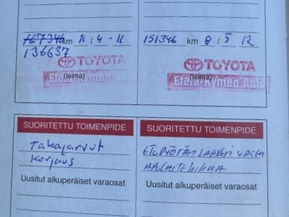 167346 km 11/4-11
136637
TOYOTA
(leima)
Etelä-Kymen Auto
151346 km 8/5 12
TOYOTA
(leima)
Etelä-Kymen Auto
SUORITETTU TOIMENPIDE
Takajarrut
Korjaus
Uusitut alkuperäiset varaosat
SUORITETTU TOIMENPIDE
ETUPYÖRÄN LAAKERI VASEN
Uusitut alkuperäiset varaosat